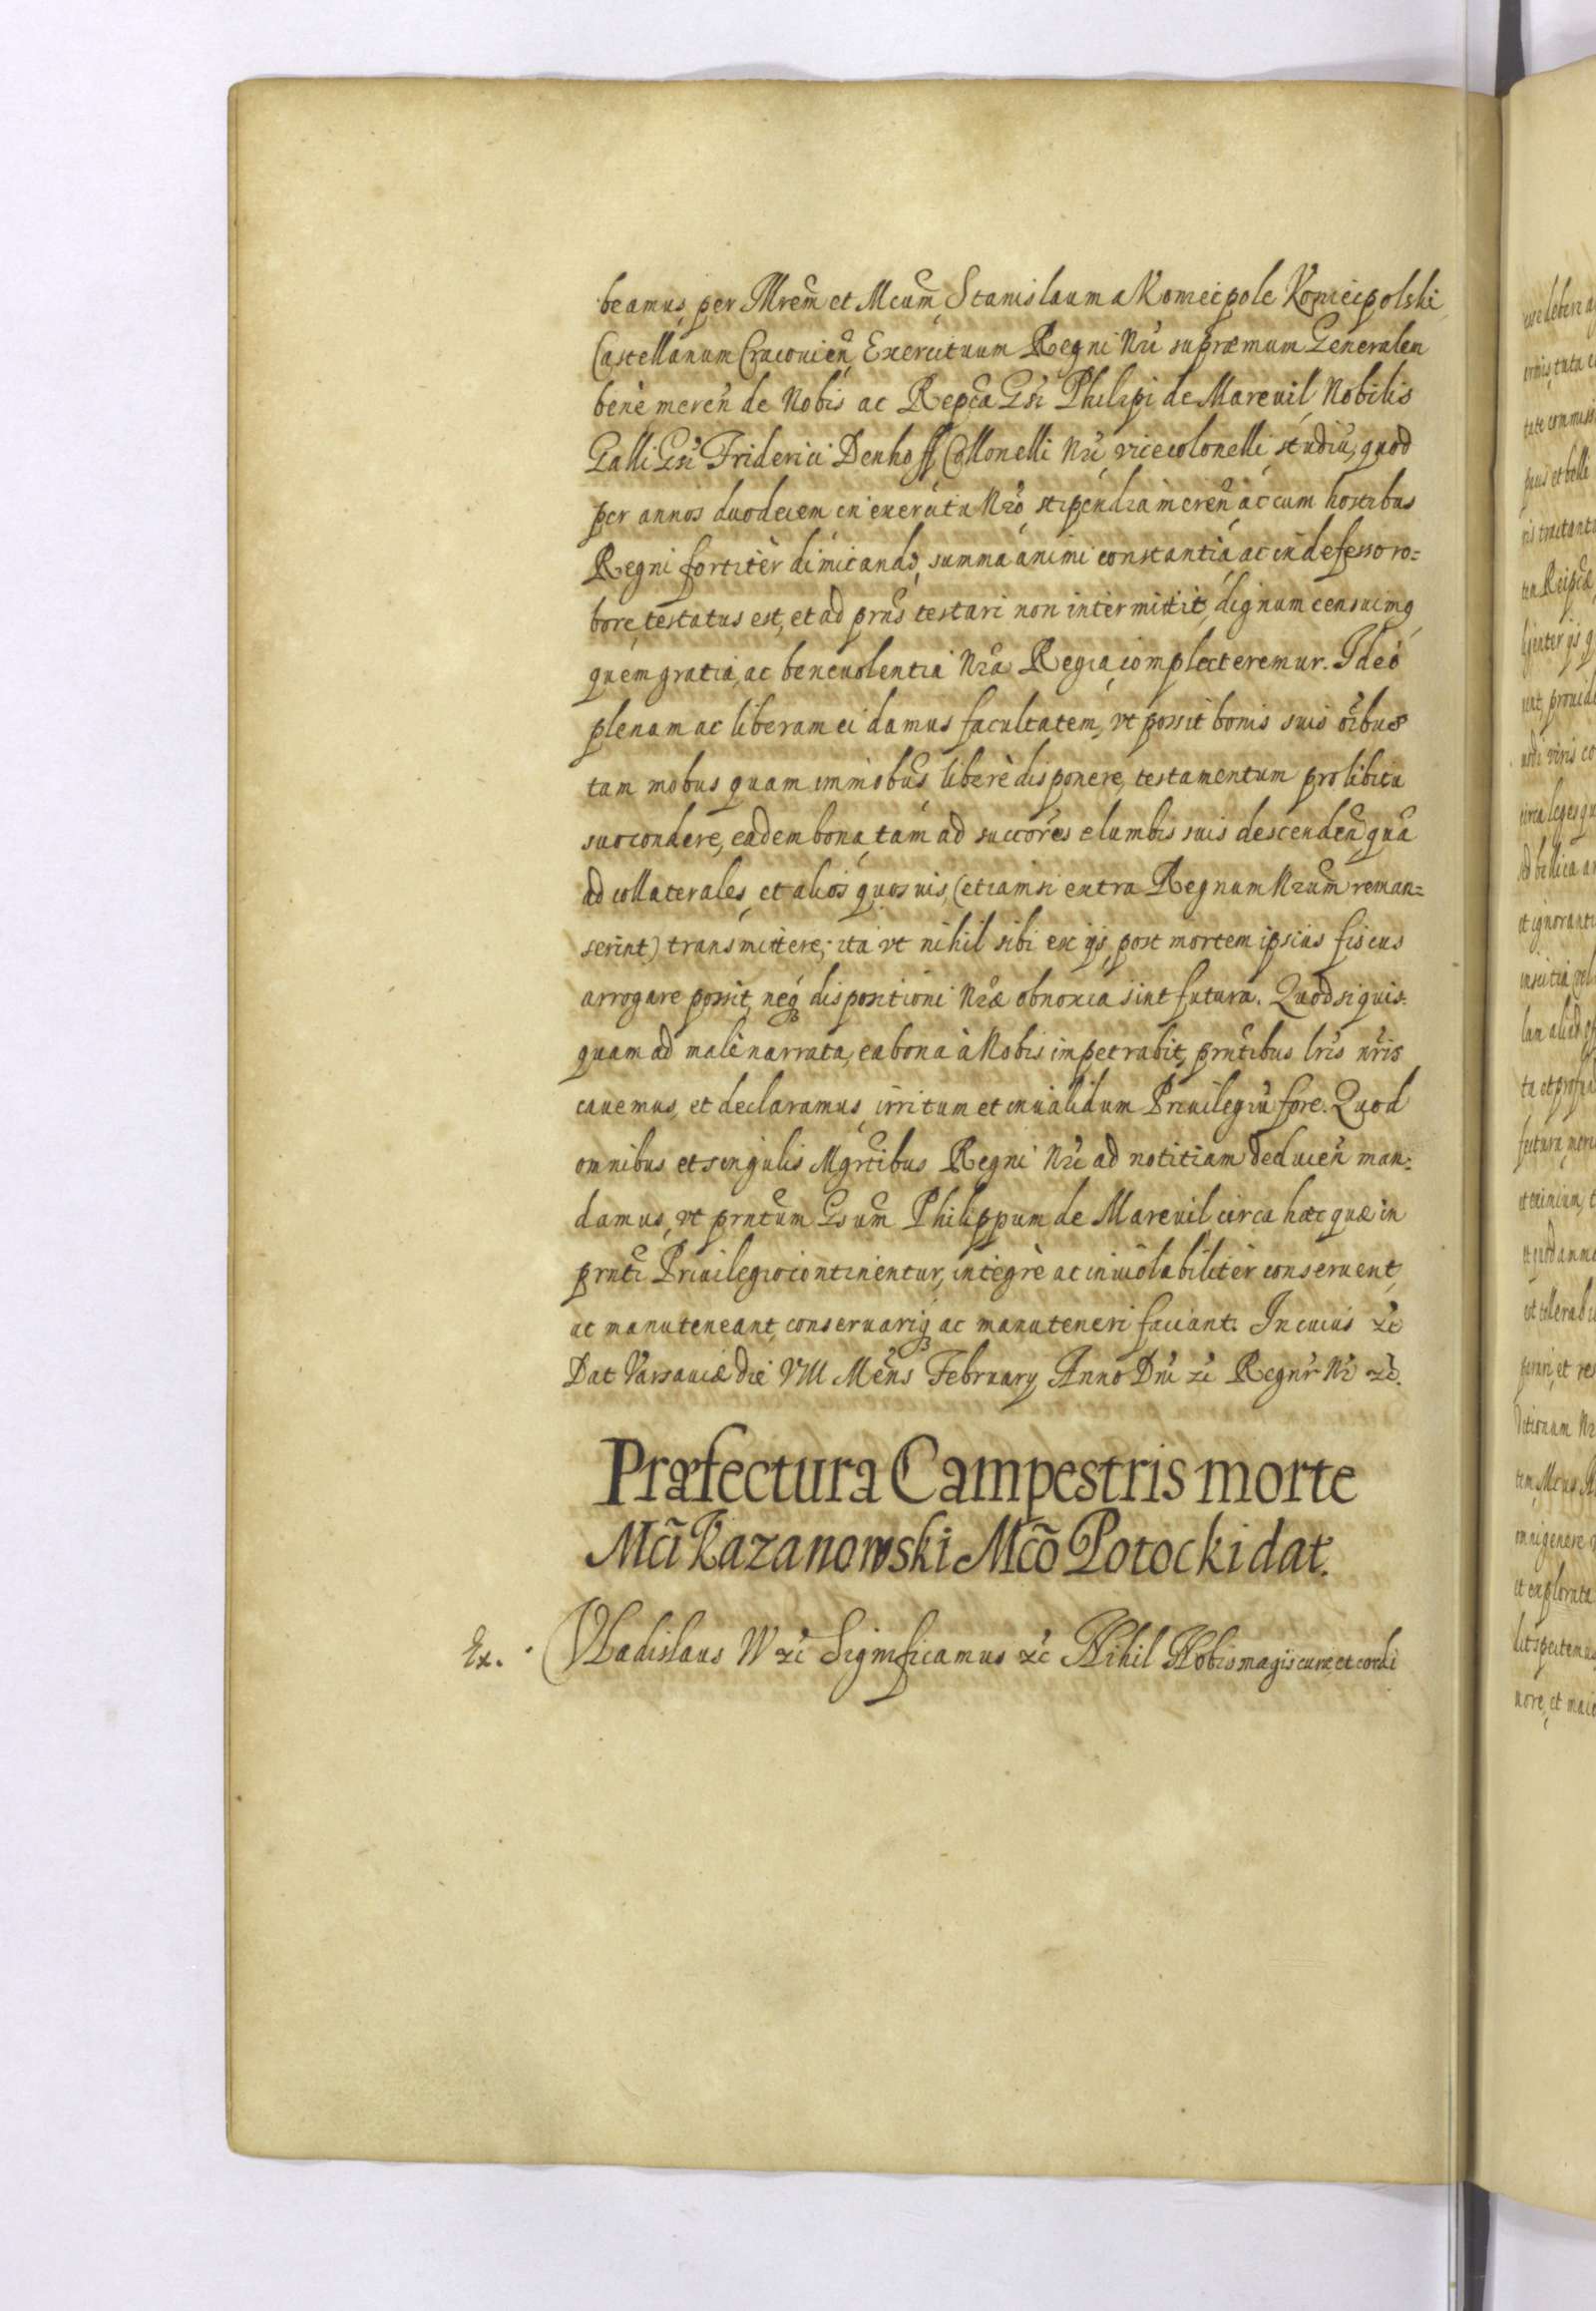 beamus, per Mrem̃ et Mcum̃ Stanislaum a Koniecpole Koniecpolski
Castellanum Cracouień, Exercituum Regni Nri supræmum Generalem
benè mereń de Nobis ac Repca Gsi Philipi de Mareuil, Nobilis
Galli Gsi Friderici Denhoff, Collonelli Nri, vicecolonelli, studiũ, quod
per annos duodecim in exercitu Nro, stipendia mereń ac cum hostibus
Regni fortitèr dimicando, summa animi constantiá ac indefesso ro=
bore, testatus est, et ad prns testari non intermittit, dignum censuimq
quem gratia, ac beneuolentia Nra Regia, complecteremur. Ideò
plenam ac liberam ei damus facultatem, vt possit bonis suis oibus
tam mobus quam immobus liberè disponere, testamentum pro libitu
suo condere, eadem bona, tam ad succores e lumbis suis descendeń, quã
ad collaterales, et alios quosuis, (etiamsi extra Regnum Nrum reman=
serint) transmittere; ita vt nihil sibi ex ijs, post mortem ipsius fiscus
arrogare possit, neq dispositioni Nræ obnoxia sint futura. Quod si quis=
quam ad malè narrata, ea bona à Nobis impetrabit, prntibus lris nris
cauemus, et declaramus, irritum et inualidum Priuilegiũ fore. Quod
omnibus et singulis Mgrtibus Regni Nri ad notitiam deducień man=
damus, vt prntum Gsum Philippum de Mareuil circa hæc quæ in
prnti Priuilegio continentur, integrè ac inuiolabilitèr conseruent,
ac manuteneant, conseruariq ac manuteneri faciant. In cuius zc
Dat Varsauiæ die VIII Mens February, Anno Dni zc Regnr Nri zc.
Præfectura Campestris morte
Mci Kazanowski Mco Potocki dat.
Ex. Vladislaus IV zc Significamus zc Nihil Nobis magis curæ, et cordi